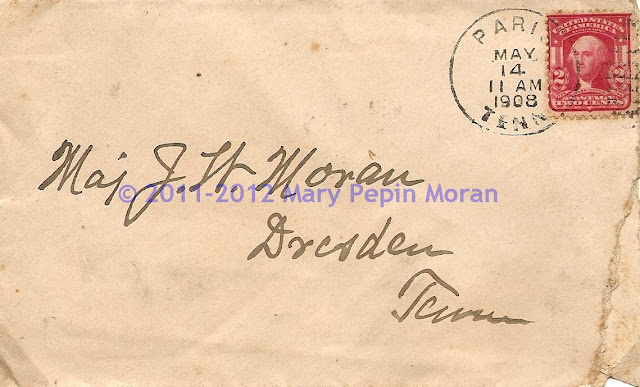 PARIS
MAY
14
11 AM
1908
TENN
UNITED STATES
OF AMERICA
2 2
POSTAGE
TWO CENTS
Maj J. W. Moran
© 2011-2012 Mary Pepin Moran
Dresden
Tenn